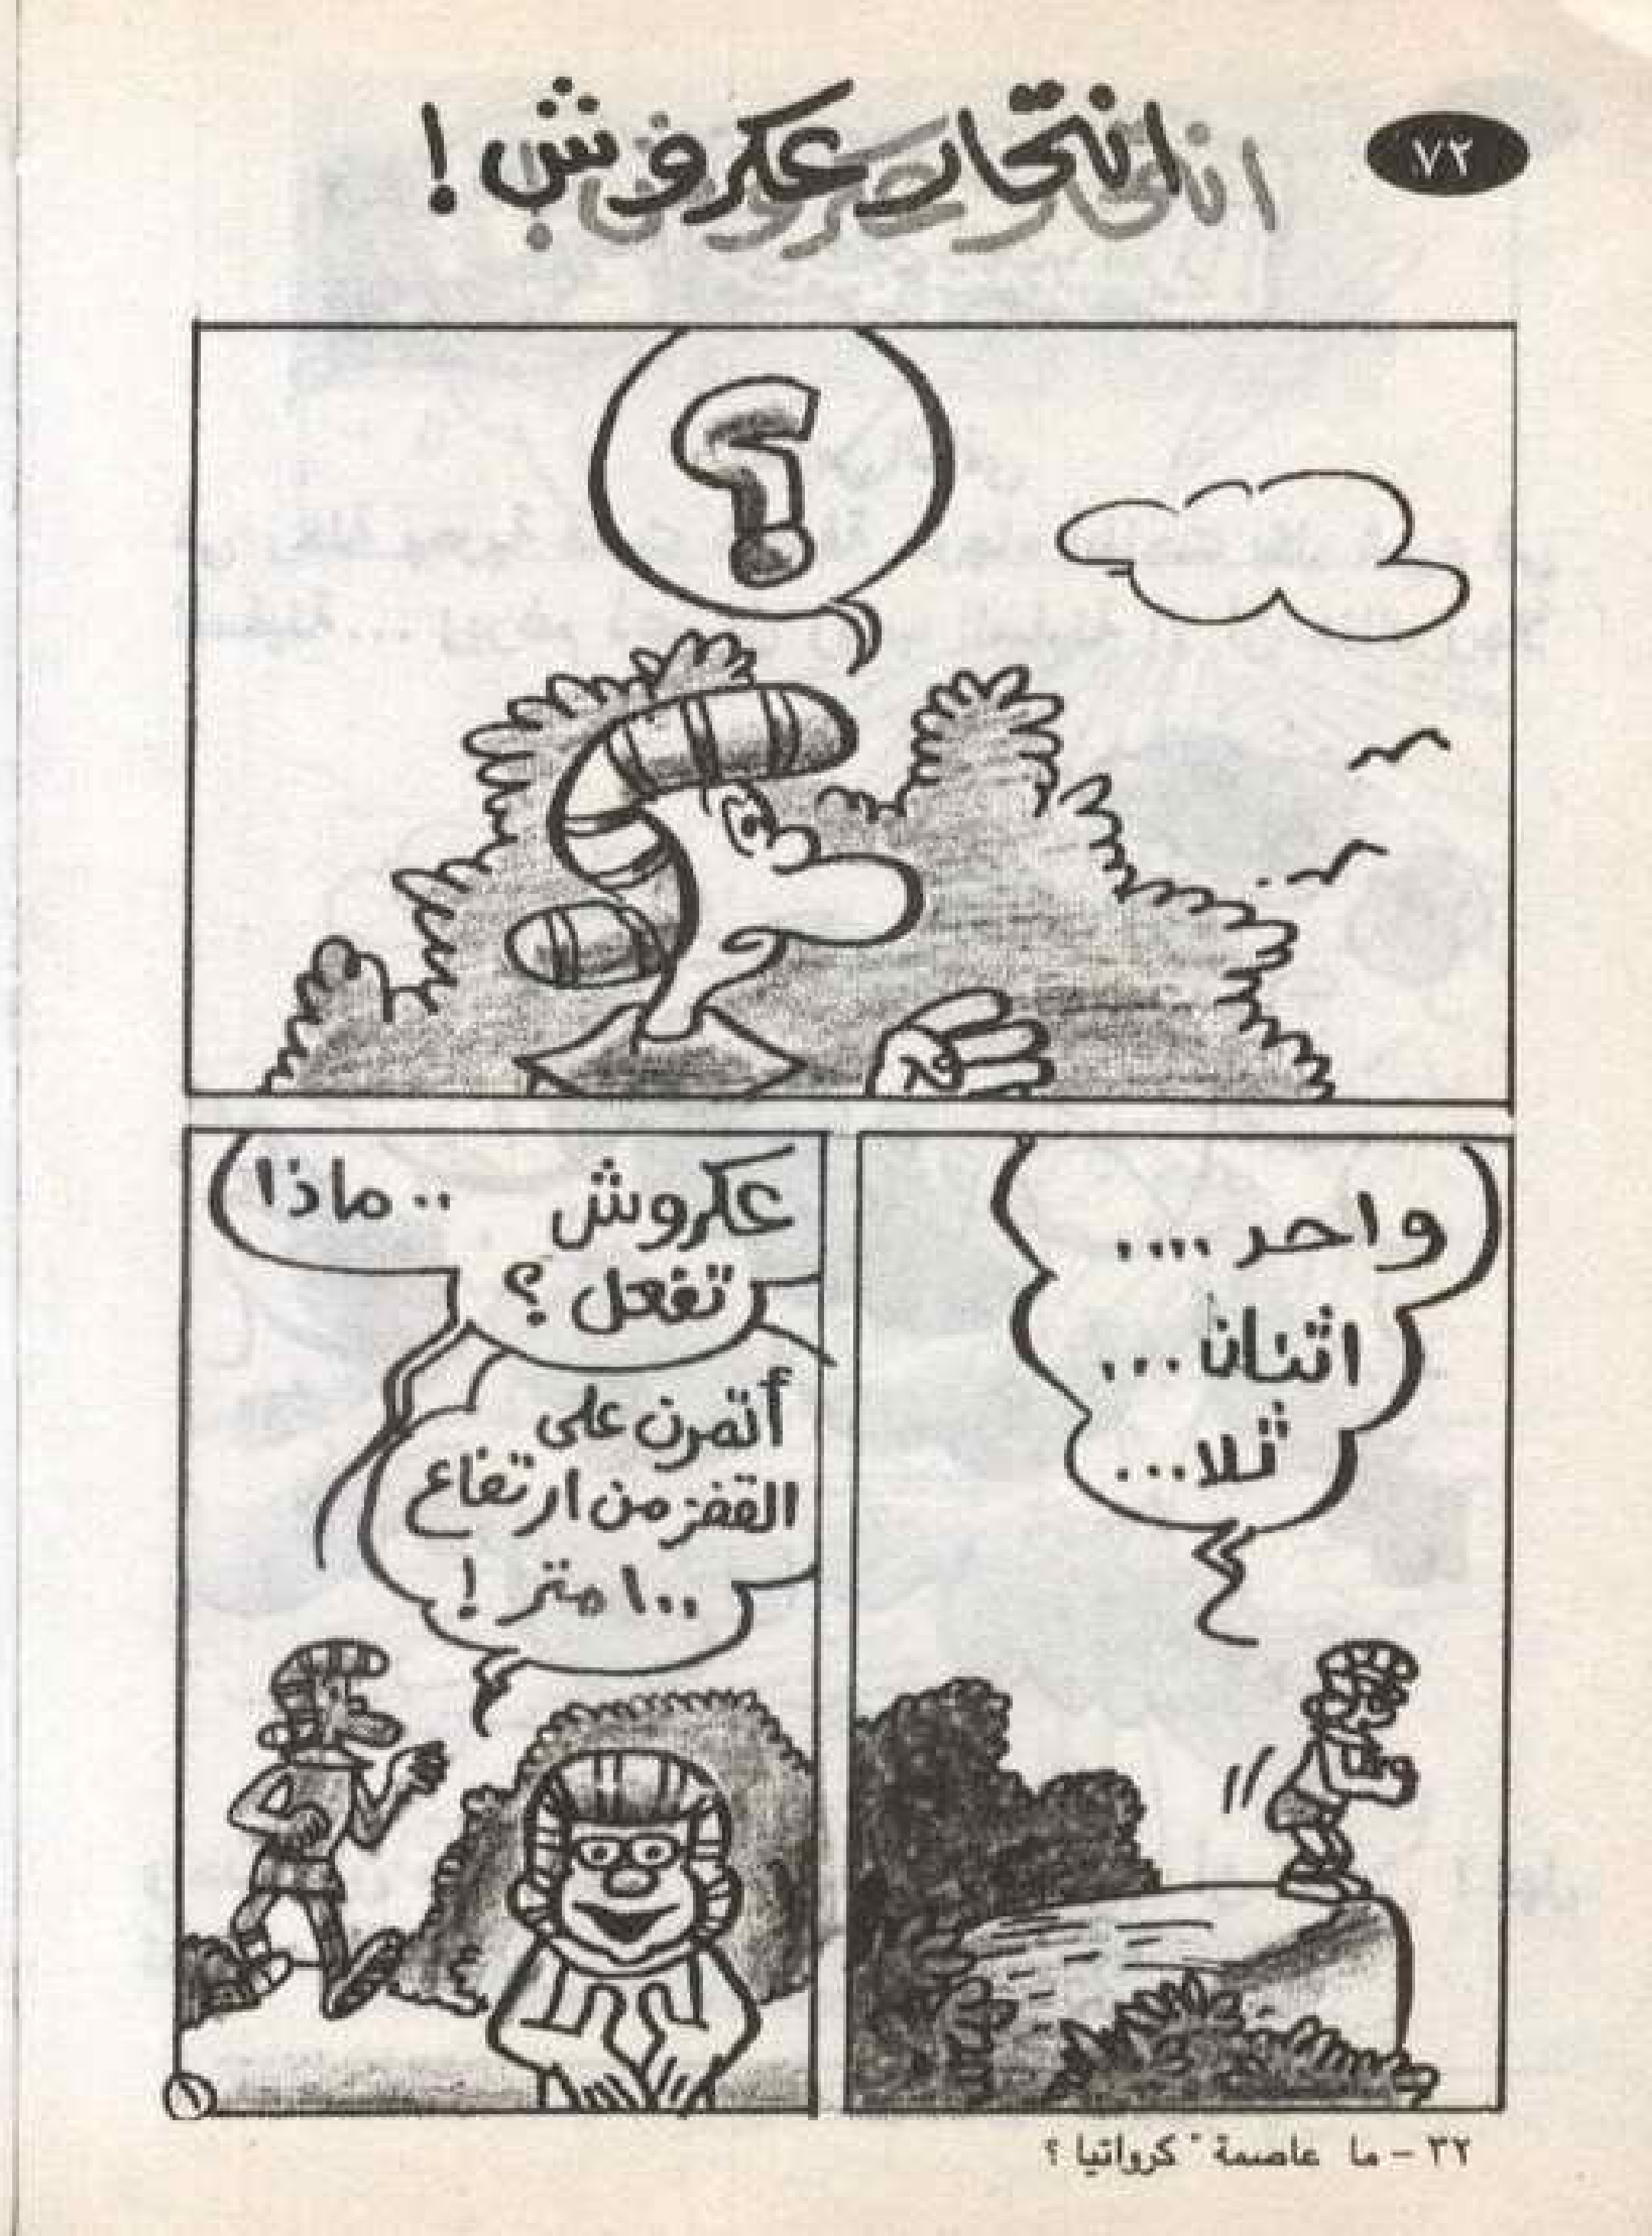 ٧٢
انتحار عكروش !
؟
واحد ....
اثنان ...
ثلا ...
عكروش .. ماذا
تفعل ؟
أتمرن على
القفز من ارتفاع
١٠٠ متر !
١
٣٢ - ما عاصمة " كرواتيا ؟